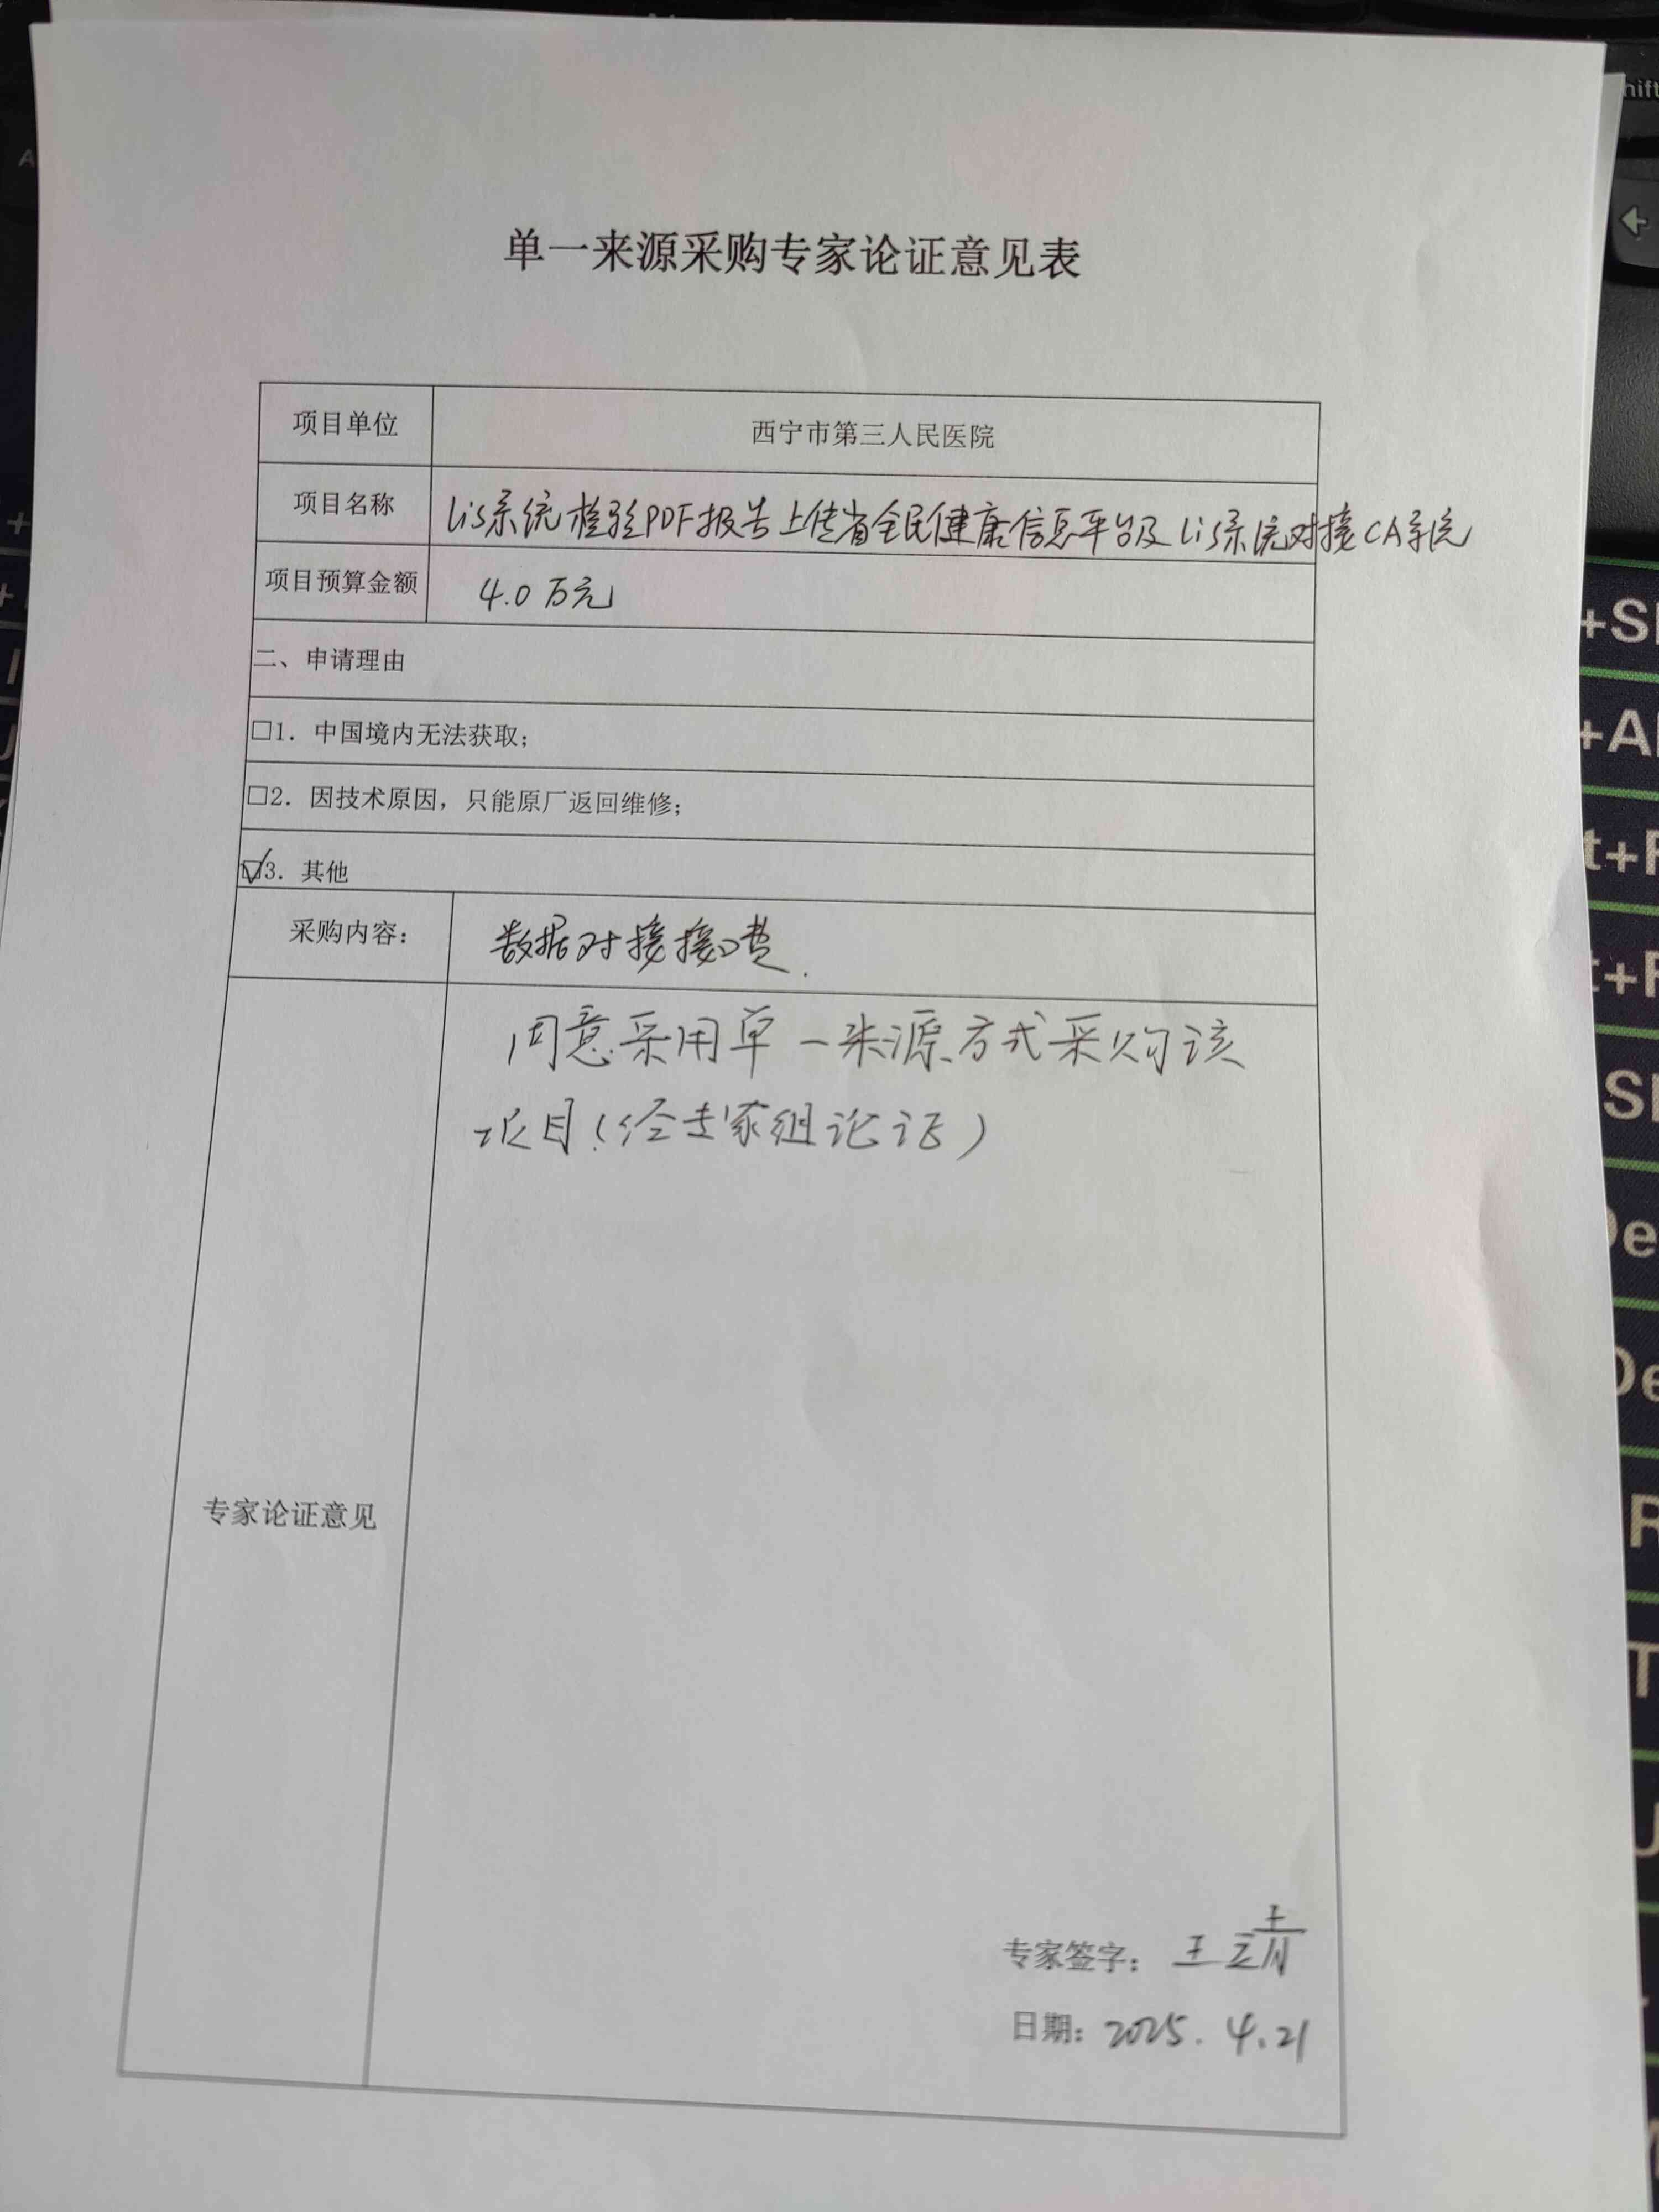 单一来源采购专家论证意见表
项目单位 西宁市第三人民医院
项目名称 Lis系统检验PDF报告上传省全民健康信息平台及Lis系统对接CA系统
项目预算金额 4.0万元
二、申请理由
□1. 中国境内无法获取;
□2. 因技术原因，只能原厂返回维修;
☑3. 其他
采购内容： 数据对接接口费.
同意采用单一来源方式采购该
项目(经专家组论证)
专家论证意见
专家签字： 王靖
日期： 2025. 4.21
hift
+S
+A
t+
De
De
R
T